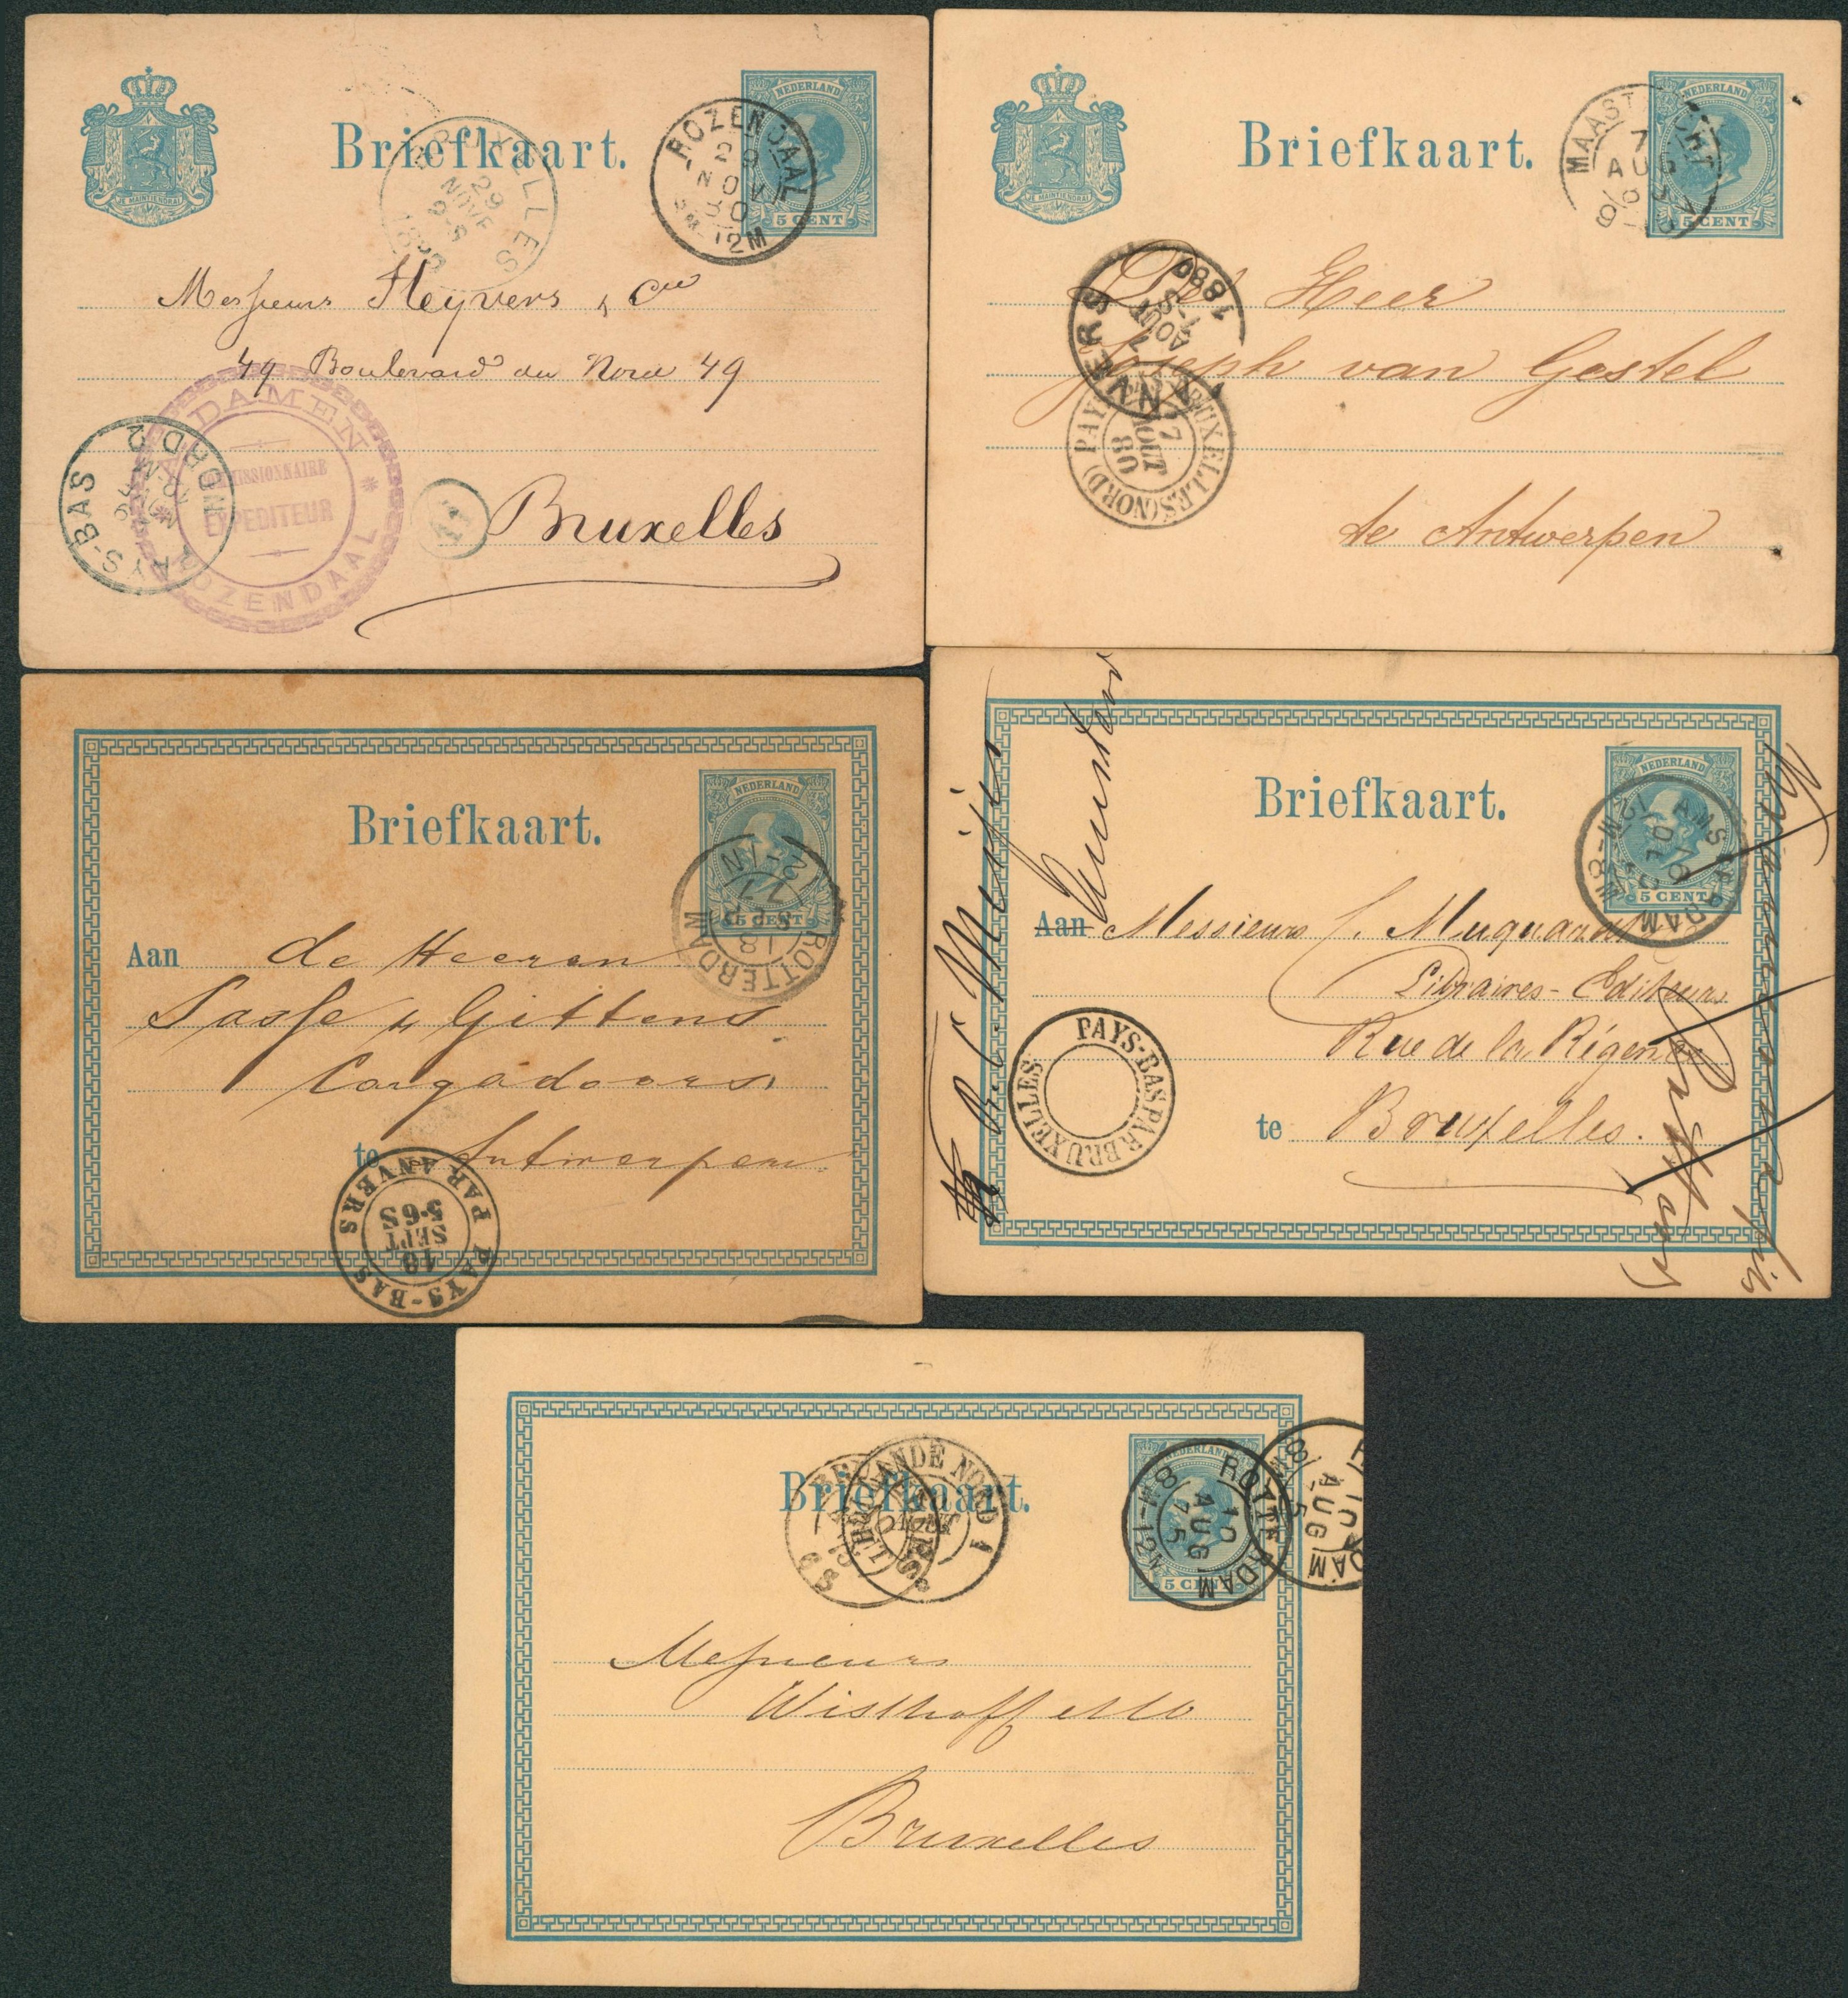 Briefkaart.
NEDERLAND
5 CENT
JE MAINTIENDRAI
ROZENDAAL
29
NOV
80
12M
BRUXELLES
29
NOVE
Messieurs Heyvers & Cie
49 Boulevard du Nord 49
Bruxelles
DAMEN
COMMISSIONNAIRE
EXPEDITEUR
ROZENDAAL
PAYS-BAS
NORD 2
Briefkaart.
NEDERLAND
5 CENT
JE MAINTIENDRAI
MAASTRICHT
7
AUG
De Heer
Joseph van Gestel
te Antwerpen
ANVERS
1880
AOUT
BRUXELLES(NORD)
AOUT
80
Briefkaart.
NEDERLAND
5 CENT
ROTTERDAM
12-1N
77
Aan de Heeren
Sasse & Gittens
Cargadoors,
te Antwerpen
PAYS-BAS PAR ANVERS
18
SEPT
5-6S
Briefkaart.
NEDERLAND
5 CENT
AMSTERDAM
8M-12M
Aan Messieurs C. Muquardt
Libraires-Editeurs
Rue de la Régence
te Bruxelles.
PAYS-BAS PAR BRUXELLES
Amsterdam
Briefkaart.
NEDERLAND
5 CENT
ROTTERDAM
10
AUG
75
8M-12M
10
AUG
NORD 1
Messieurs
Wisthoff
Bruxelles